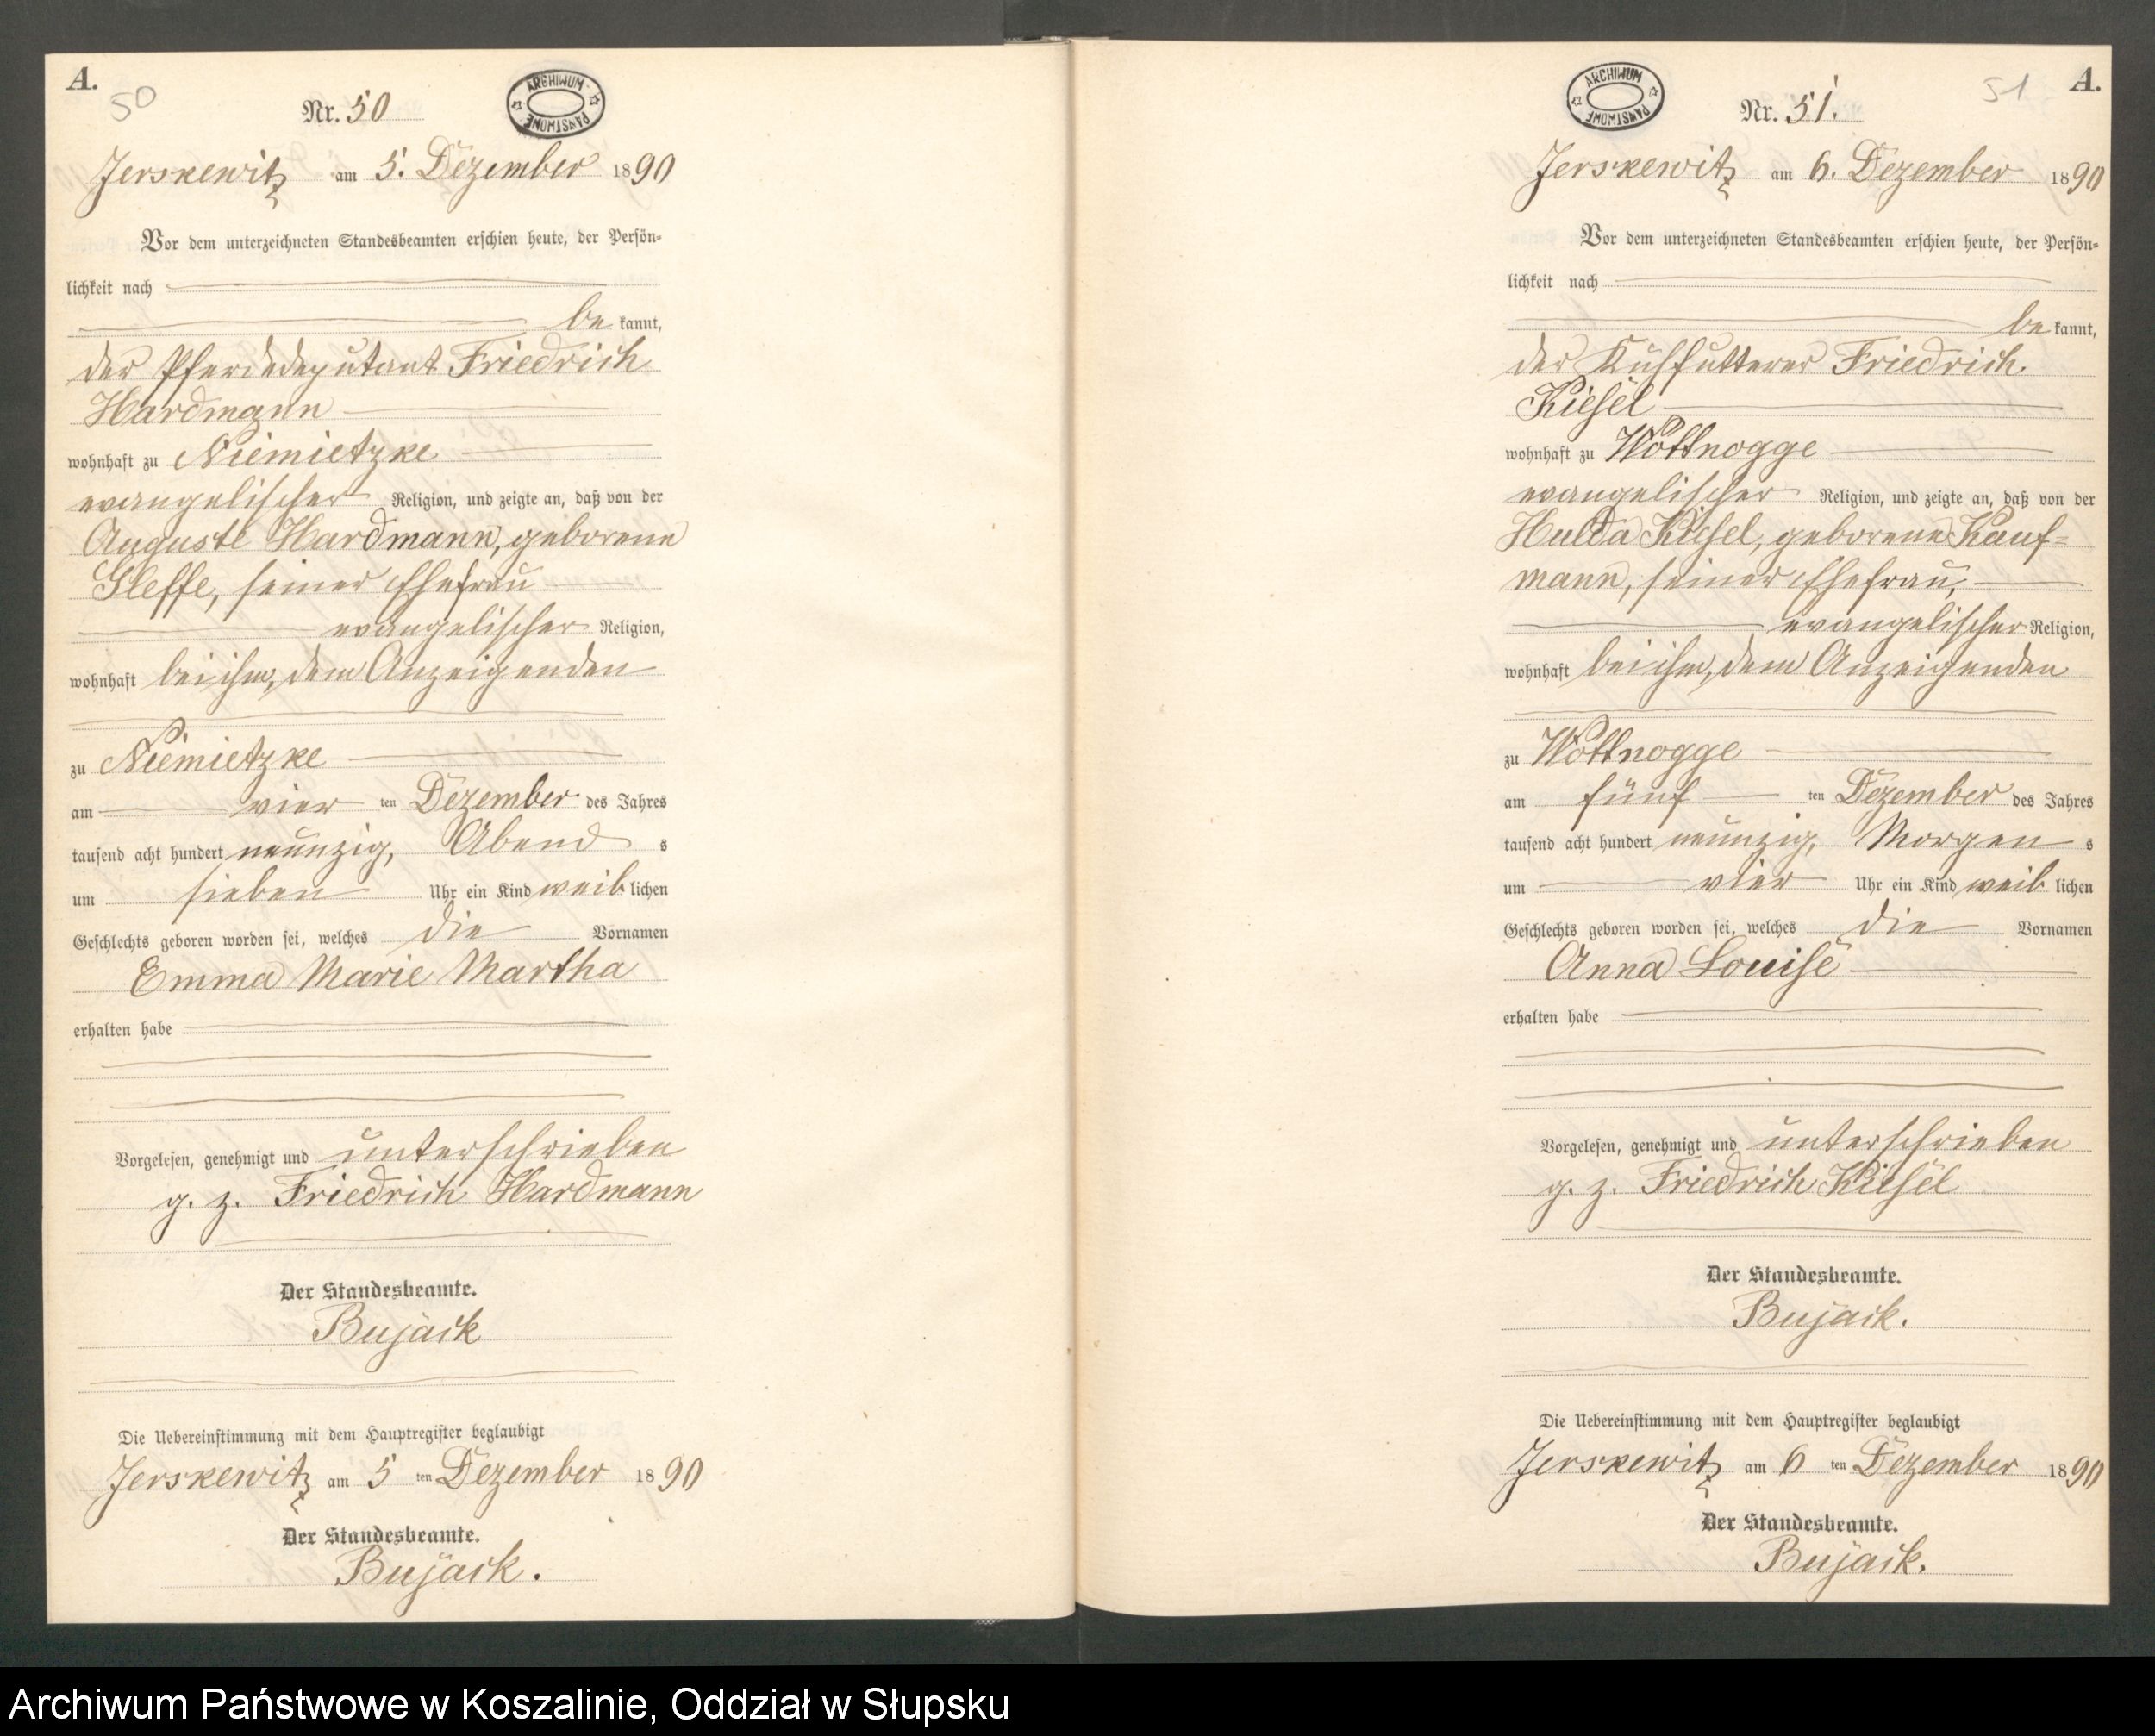 A.
50
Nr. 50
ARCHIWUM PAŃSTWOWE
Jerskewitz am 5. Dezember 1890
Vor dem unterzeichneten Standesbeamten erschien heute, der Persön-
lichkeit nach
be kannt,
der Pferdedeputant Friedrich
Hardmann
wohnhaft zu Niemietzke
evangelischer Religion, und zeigte an, daß von der
Auguste Hardmann, geborene
Steffe, seiner Ehefrau
evangelischer Religion,
wohnhaft bei ihm, dem Anzeigenden
zu Niemietzke
am vier ten Dezember des Jahres
tausend acht hundert neunzig, Abend s
um sieben Uhr ein Kind weib lichen
Geschlechts geboren worden sei, welches die Vornamen
Emma Marie Martha
erhalten habe
Vorgelesen, genehmigt und unterschrieben
g. z. Friedrich Hardmann
Der Standesbeamte.
Bujack
Die Uebereinstimmung mit dem Hauptregister beglaubigt
Jerskewitz am 5 ten Dezember 1890
Der Standesbeamte.
Bujack.
ARCHIWUM PAŃSTWOWE
51
A.
Nr. 51.
Jerskewitz am 6. Dezember 1890
Vor dem unterzeichneten Standesbeamten erschien heute, der Persön-
lichkeit nach
be kannt,
der Kuhfutterer Friedrich
Kiesel
wohnhaft zu Wottnogge
evangelischer Religion, und zeigte an, daß von der
Hulda Kiesel, geborene Kauf-
mann, seiner Ehefrau,
evangelischer Religion,
wohnhaft bei ihm, dem Anzeigenden
zu Wottnogge
am fünf ten Dezember des Jahres
tausend acht hundert neunzig, Morgen s
um vier Uhr ein Kind weib lichen
Geschlechts geboren worden sei, welches die Vornamen
Anna Louise
erhalten habe
Vorgelesen, genehmigt und unterschrieben
g. z. Friedrich Kiesel
Der Standesbeamte.
Bujack.
Die Uebereinstimmung mit dem Hauptregister beglaubigt
Jerskewitz am 6 ten Dezember 1890
Der Standesbeamte.
Bujack.
Archiwum Państwowe w Koszalinie, Oddział w Słupsku